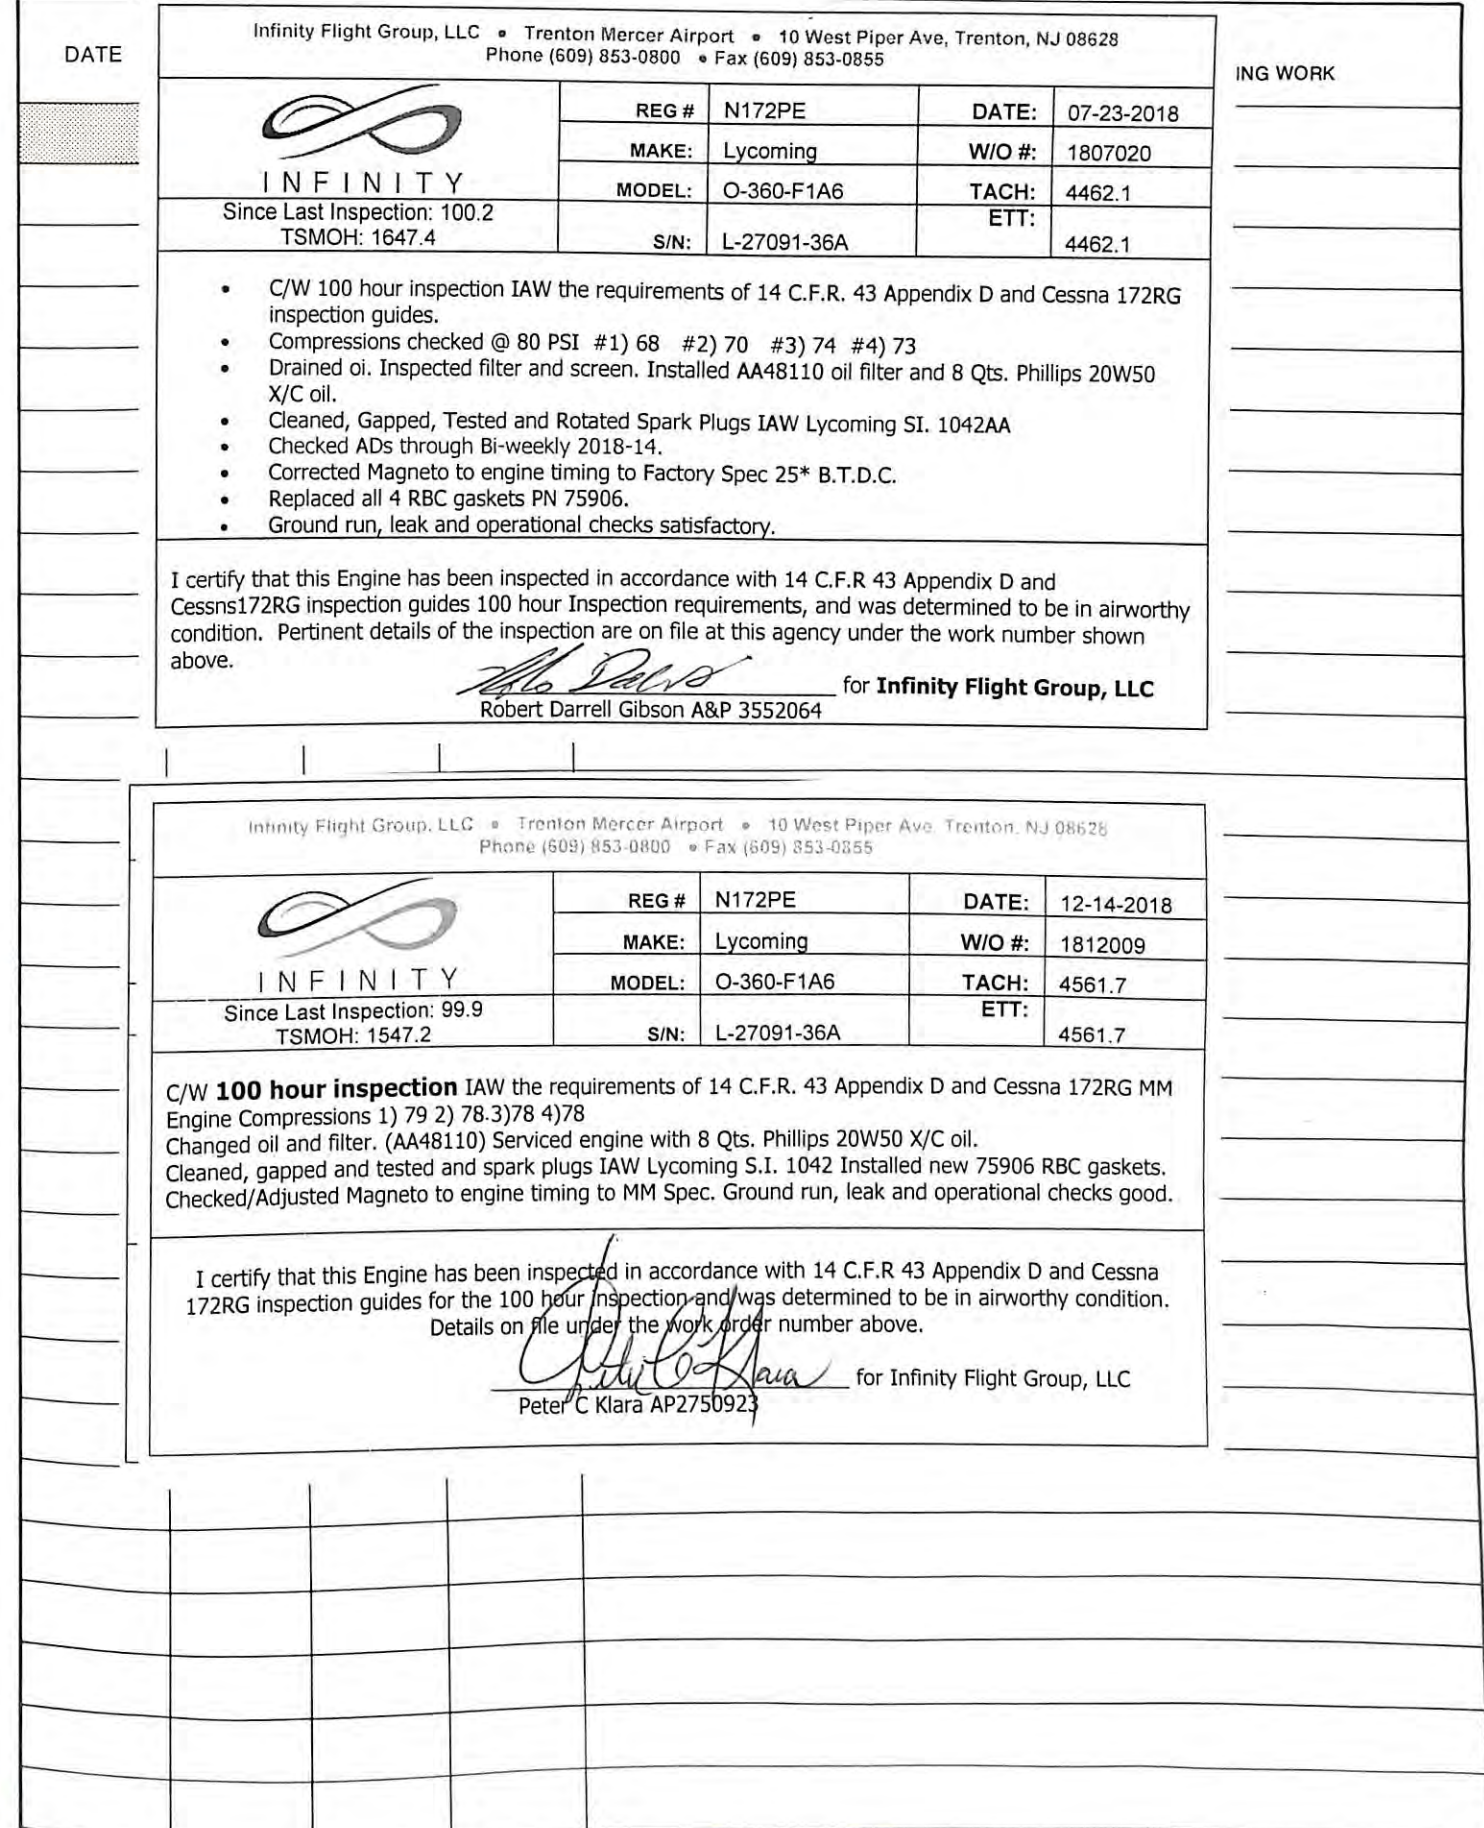 Infinity Flight Group, LLC • Trenton Mercer Airport • 10 West Piper Ave, Trenton, NJ 08628
Phone (609) 853-0800 • Fax (609) 853-0855
DATE
ING WORK
REG # N172PE DATE: 07-23-2018
MAKE: Lycoming W/O #: 1807020
INFINITY
MODEL: O-360-F1A6 TACH: 4462.1
Since Last Inspection: 100.2
TSMOH: 1647.4
S/N: L-27091-36A ETT: 4462.1
• C/W 100 hour inspection IAW the requirements of 14 C.F.R. 43 Appendix D and Cessna 172RG
inspection guides.
• Compressions checked @ 80 PSI #1) 68 #2) 70 #3) 74 #4) 73
• Drained oi. Inspected filter and screen. Installed AA48110 oil filter and 8 Qts. Phillips 20W50
X/C oil.
• Cleaned, Gapped, Tested and Rotated Spark Plugs IAW Lycoming SI. 1042AA
• Checked ADs through Bi-weekly 2018-14.
• Corrected Magneto to engine timing to Factory Spec 25* B.T.D.C.
• Replaced all 4 RBC gaskets PN 75906.
• Ground run, leak and operational checks satisfactory.
I certify that this Engine has been inspected in accordance with 14 C.F.R 43 Appendix D and
Cessns172RG inspection guides 100 hour Inspection requirements, and was determined to be in airworthy
condition. Pertinent details of the inspection are on file at this agency under the work number shown
above.
for Infinity Flight Group, LLC
Robert Darrell Gibson A&P 3552064
Infinity Flight Group, LLC • Trenton Mercer Airport • 10 West Piper Ave, Trenton, NJ 08628
Phone (609) 853-0800 • Fax (609) 853-0855
REG # N172PE DATE: 12-14-2018
MAKE: Lycoming W/O #: 1812009
INFINITY
MODEL: O-360-F1A6 TACH: 4561.7
Since Last Inspection: 99.9
TSMOH: 1547.2
S/N: L-27091-36A ETT: 4561.7
C/W 100 hour inspection IAW the requirements of 14 C.F.R. 43 Appendix D and Cessna 172RG MM
Engine Compressions 1) 79 2) 78.3)78 4)78
Changed oil and filter. (AA48110) Serviced engine with 8 Qts. Phillips 20W50 X/C oil.
Cleaned, gapped and tested and spark plugs IAW Lycoming S.I. 1042 Installed new 75906 RBC gaskets.
Checked/Adjusted Magneto to engine timing to MM Spec. Ground run, leak and operational checks good.
I certify that this Engine has been inspected in accordance with 14 C.F.R 43 Appendix D and Cessna
172RG inspection guides for the 100 hour inspection and was determined to be in airworthy condition.
Details on file under the work order number above.
Peter C Klara for Infinity Flight Group, LLC
Peter C Klara AP2750923